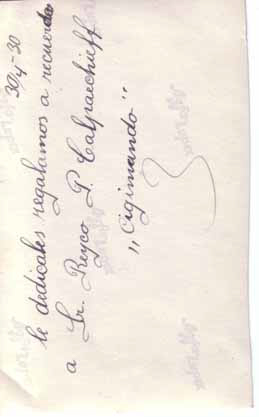 30/4-30
le dedicates regalamos a recuerdo
a Sr. Reyco P. Calpaechieff
„Cigimando"